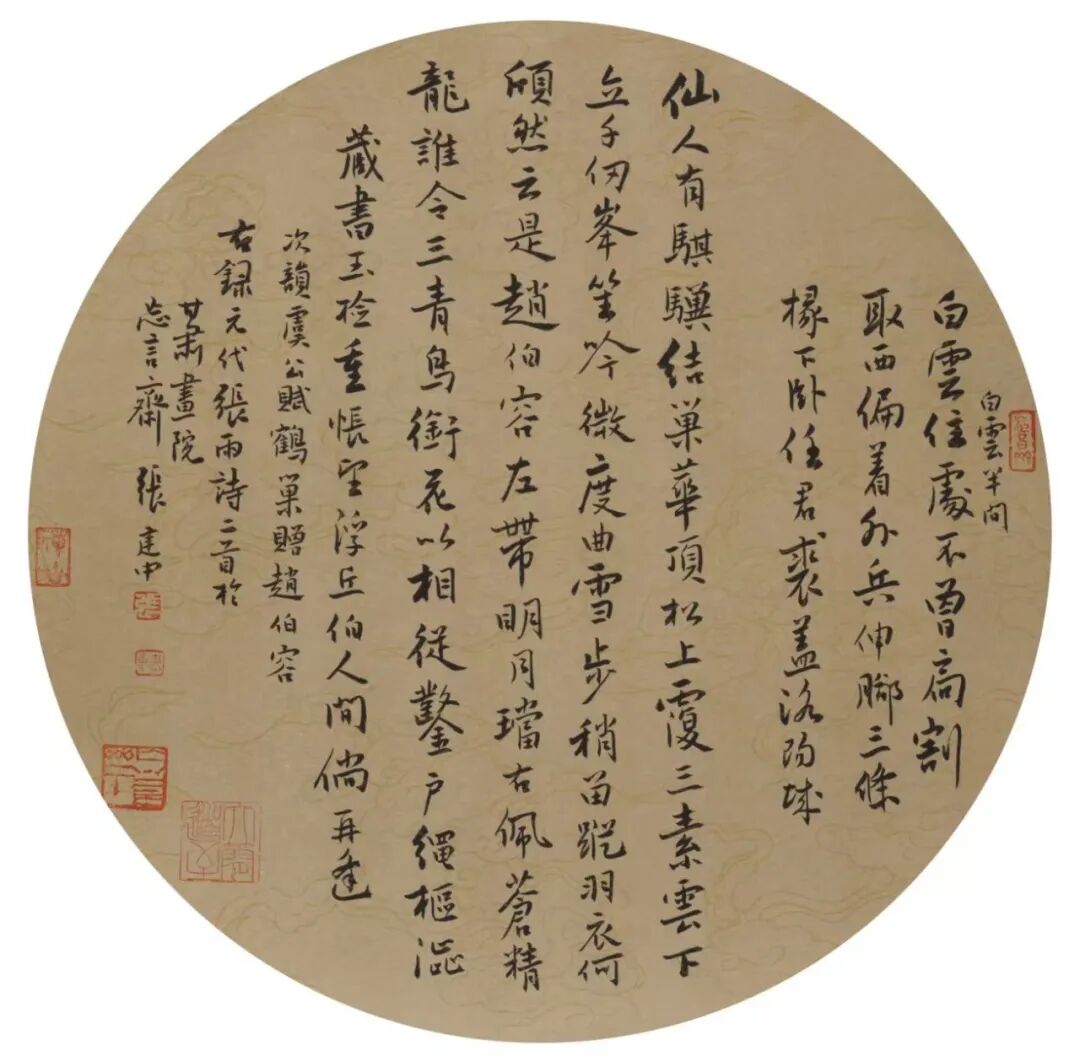 白雲半間
白雲住處不曾扃割
取西偏着外兵伸腳三條
椽下臥任君裘蓋洛陽城
仙人有騏驥結巢華頂松上覆三素雲下
立千仞峯笙吟微度曲雪步稍留蹤羽衣何
頎然云是趙伯容左帶明月璫右佩蒼精
龍誰令三青鳥銜花以相從鑿戶繩樞澁
藏書玉檢重悵望浮丘伯人間倘再逢
次韻虞公賦鶴巢贈趙伯容
右録元代張雨詩二首於
甘肅畫院
忘言齋 張建中